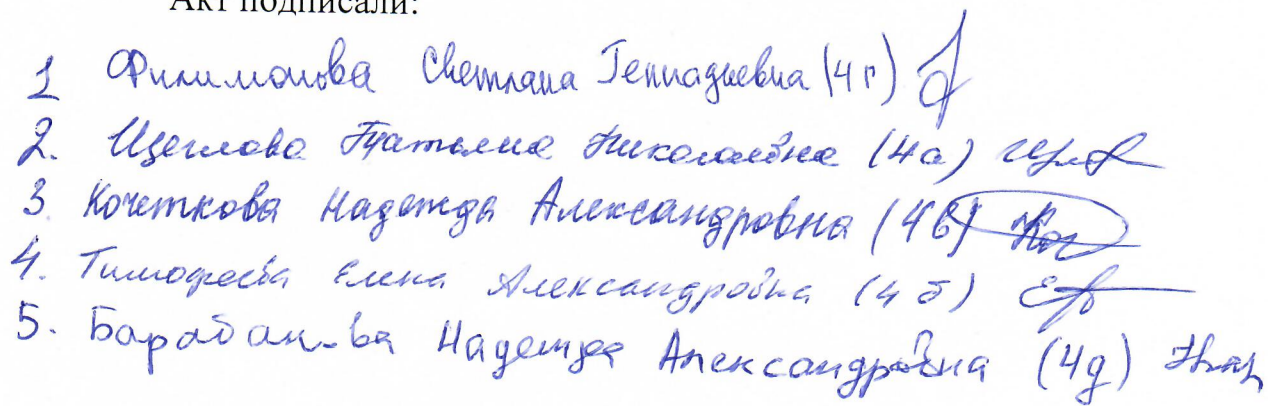 Акт подписали:
1 Филимонова Светлана Геннадьевна (4 г)
2. Щеглова Татьяна Николаевна (4а)
3. Кочеткова Надежда Александровна (4в)
4. Тимофеева Елена Александровна (4 б)
5. Барабанова Надежда Александровна (4д)